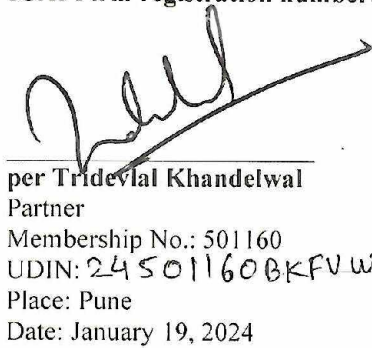 per Tridevlal Khandelwal
Partner
Membership No.: 501160
UDIN: 24501160BKFVW
Place: Pune
Date: January 19, 2024